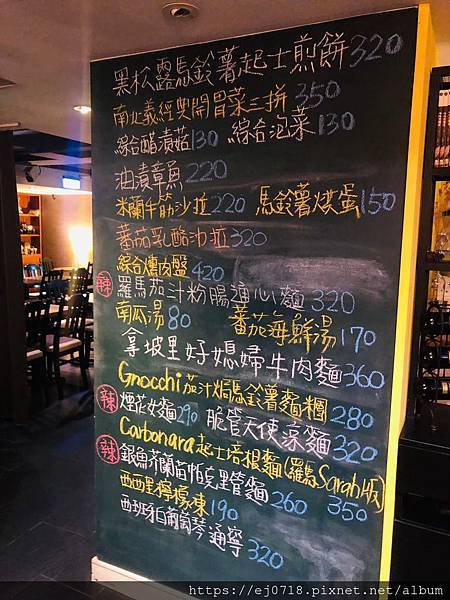 黑松露馬鈴薯起士煎餅320
南北義經典開胃菜三拼350
綜合醋漬菇130 綜合泡菜130
油漬章魚220
米蘭牛筋沙拉220 馬鈴薯烘蛋150
蕃茄乳酪沙拉320
綜合燻肉盤420
辣 羅馬茄汁粉腸通心麵320
南瓜湯80 蕃茄海鮮湯170
拿坡里好媳婦牛肉麵360
Gnocchi茄汁焗馬鈴薯麵糰280
辣 煙花女麵290 脆管天使涼麵320
Carbonara起士培根麵(羅馬Sarah版)
辣 銀魚芥蘭苗帕克里管麵260 350
西西里檸檬凍190
西班牙白葡萄琴通寧320
https://ej0718.pixnet.net/album